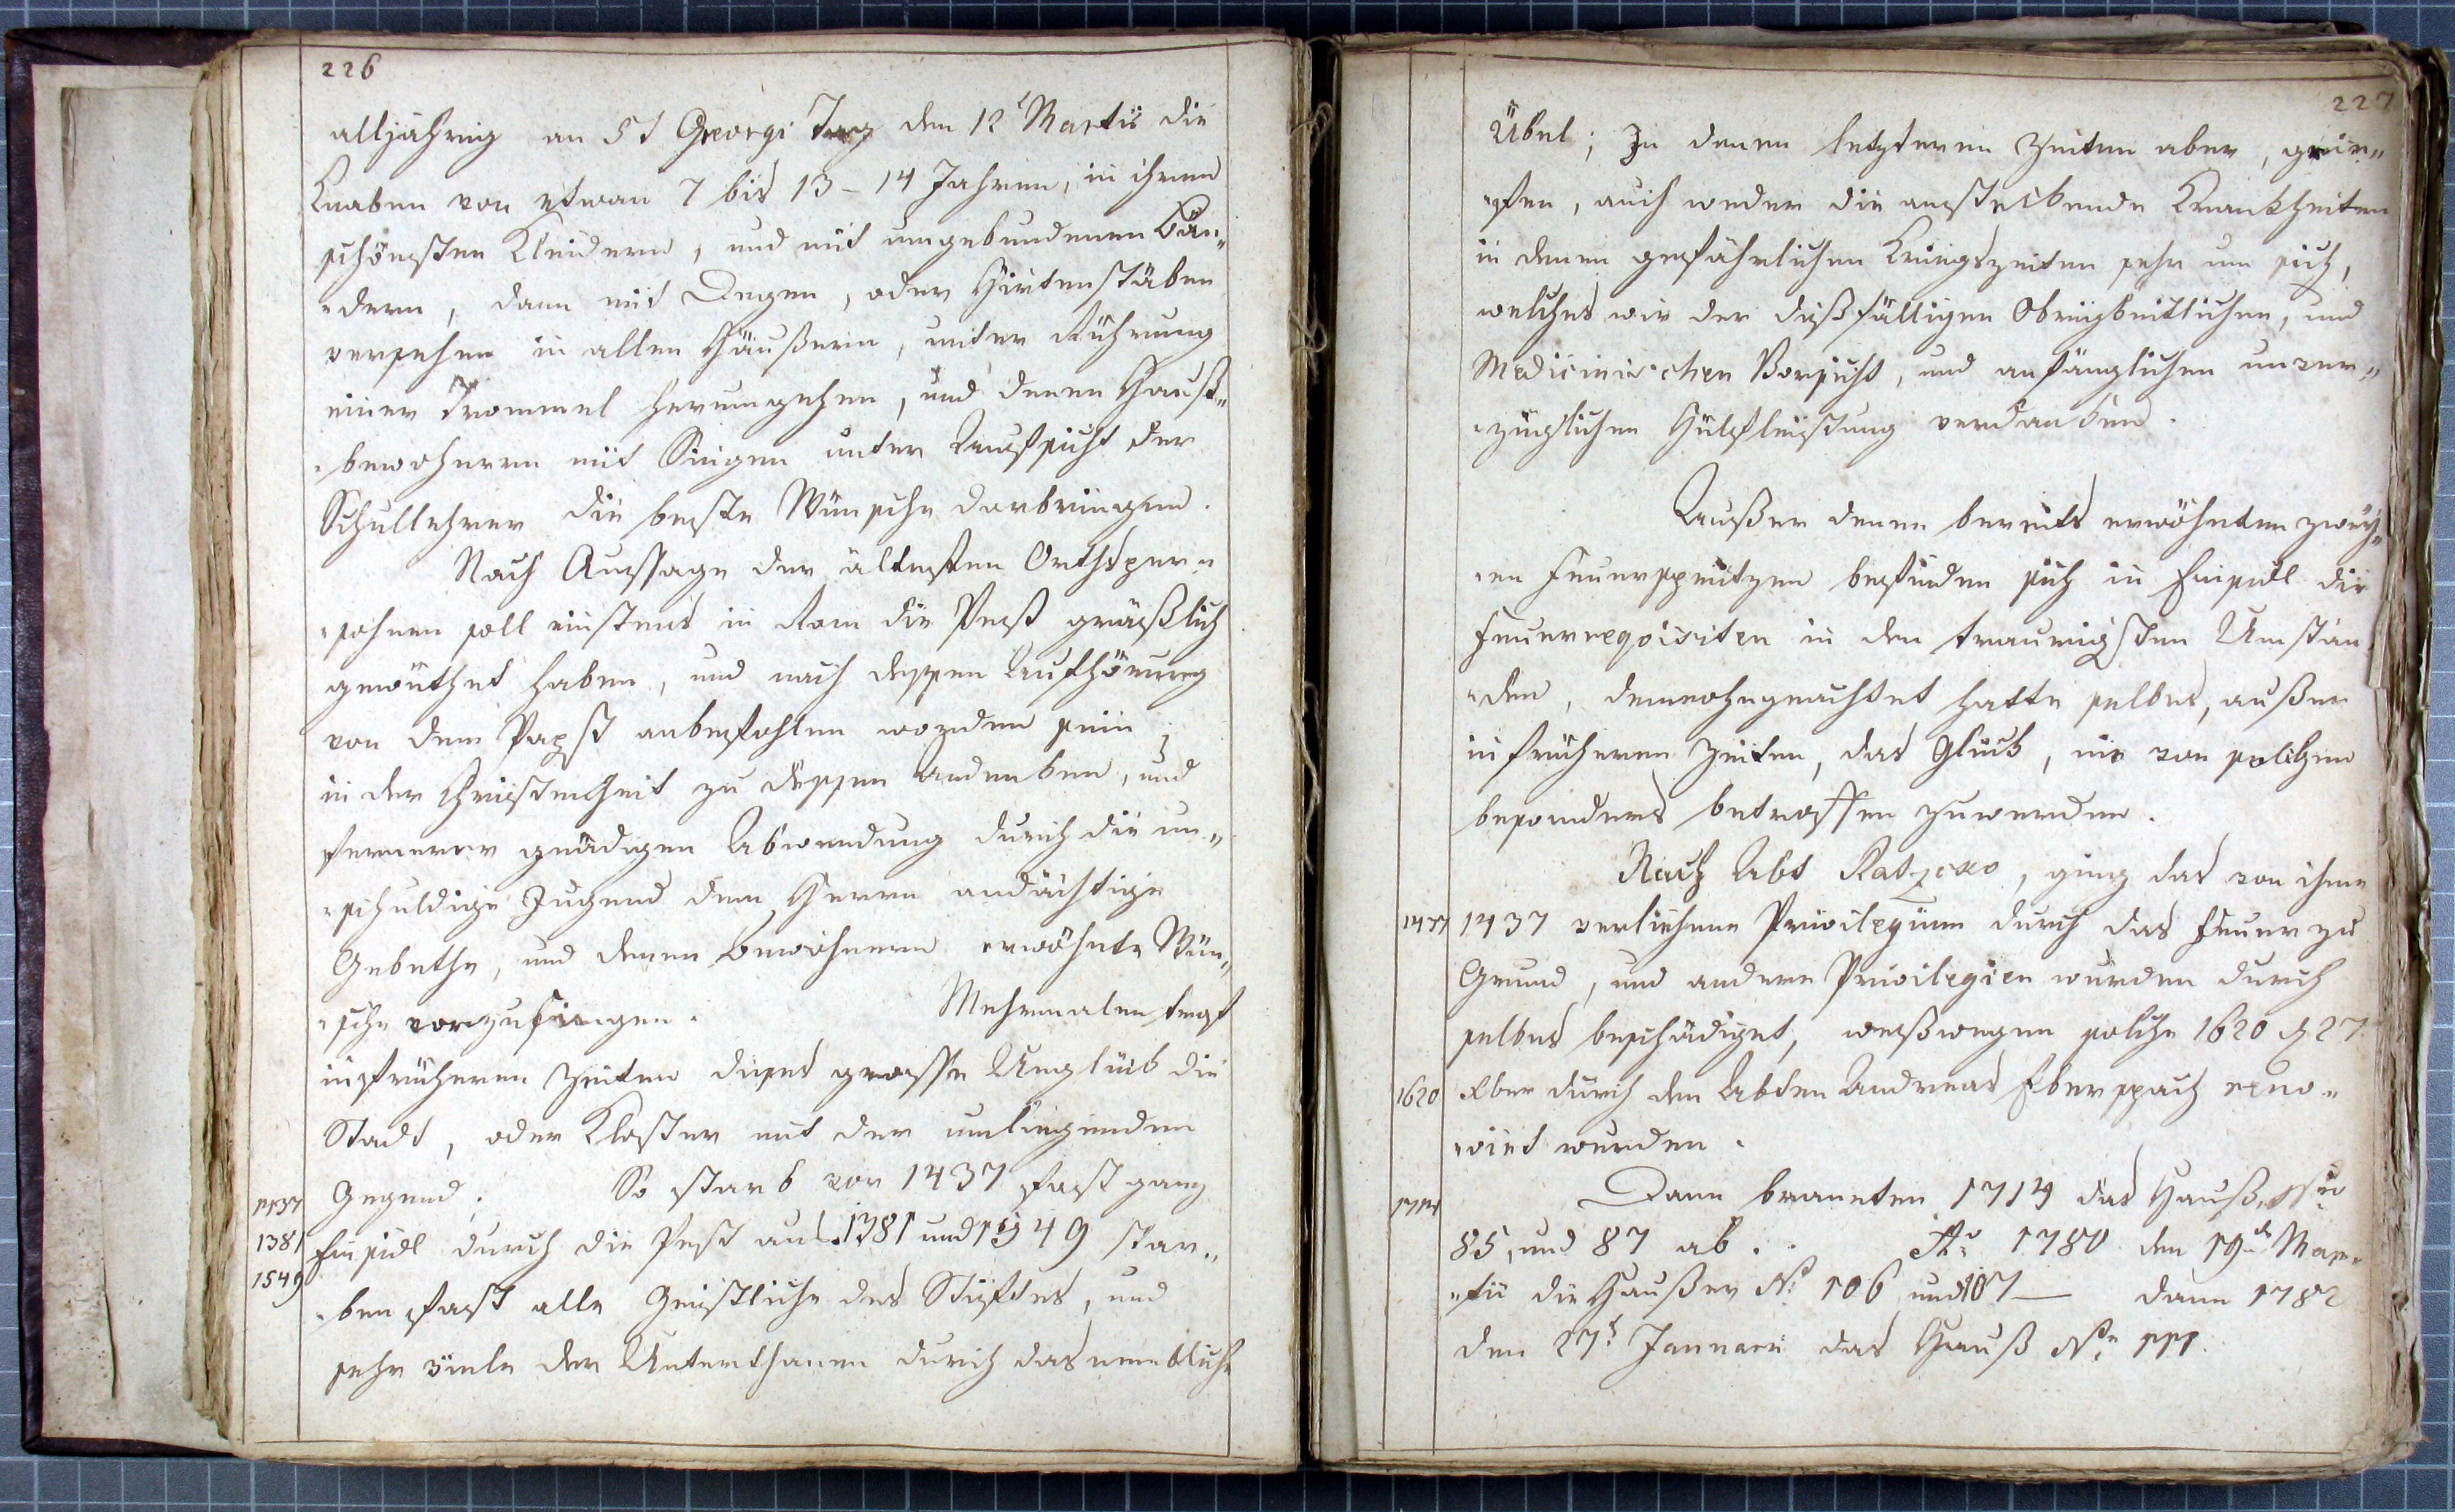 226
alljährig an St Georgi Tag den 12t Martii die
Knaben von etwan 7 bis 13–14 Jahren, in ihren
schönsten Kleidern, und mit umgebundenen Bän„
„dern, dann mit Degen, oder Hirtenstäben
versehen in allen Häußern, unter Rührung
einer Trommel herumgehen, und denen Hauß„
„bewohnern mit Singen unter Aufsicht der
Schullehrer die beste Wünsche darbringen.
Nach Aussage der ältesten Orthsper„
„sohnen soll einstens in Rom die Pest gräßlich
gewüthet haben, und nach dessen Aufhörung
von dem Papst anbefohlen worden sein
in der Christenheit zu dessen andenken, und
fernerer gnädigen Abwendung durch die un„
„schuldige Jugend dem Herrn andächtige
Gebethe, und denen Bewohnern erwöhnte Wün„
„sche vorzusingen. Mehrmalen traf
in früheren Zeiten dises grosse Unglück die
Stadt, oder Kloster mit der umligenden
1437 Gegend. So starb vor 1437 fast ganz
1381 Einsidl durch die Pest aus. 1381 und 1549 star„
1549
„ben fast alle Geistliche des Stiftes, und
sehr viele der Unterthanen durch das nembliche
227
Übel; Zu denen letzteren Zeiten aber, grie„
„fen, auch weder die ansteckende Krankheiten
in denen gefährlichen Kriegszeiten sehr um sich,
welches wir der dißfälligen Obrigkeitlichen, und
Medicinischen Vorsicht, und anfänglichen unver„
„züglichen Hülfleistung verdanken.
Außer denen bereits erwöhnten zwey„
„en Feuerspritzen befinden sich in Einsidl die
Feuerreqvisiten in den traurigsten Umstän
„den, demohngeachtet hatte selbes, außer
in früheren Zeiten, das Glück, nie von solchem
besonders betroffen zuwerden.
Nach Abt Ratzko, ging das von ihme
1437 1437 verliehene Privilegium durch das Feuer zu
Grund, und andere Privilegien wurden durch
selbes beschädiget, weßwegen solche 1620 d 27
1620 8ber durch den Abten Andreas Eberspach reno„
„virt wurden.
1714 Dann brannten 1714 das Hauß Nro
85, und 87 ab. Ao 1780 den 19t Mar„
„tii die Haußer No 106 und 107 — dann 1782
den 27t Januari das Hauß No 111.